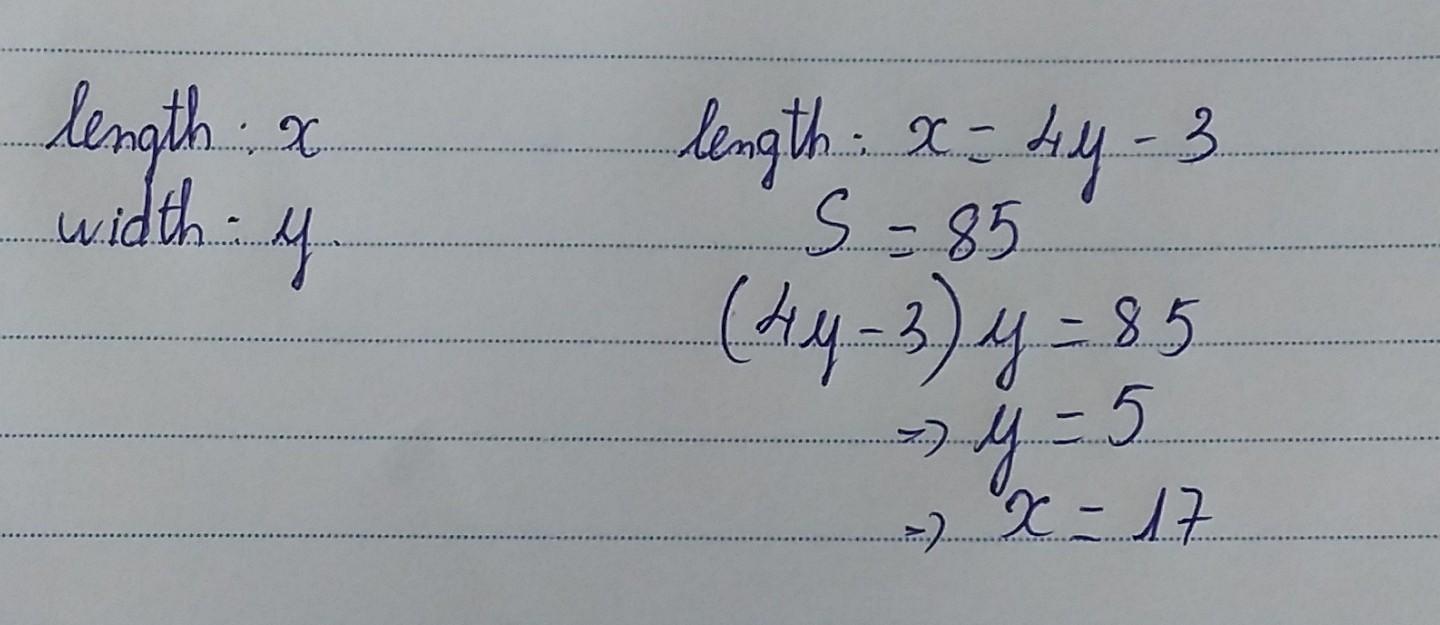 length : x
width : y.
length : x = 4y - 3
S = 85
(4y - 3) y = 85
=> y = 5
=> x = 17